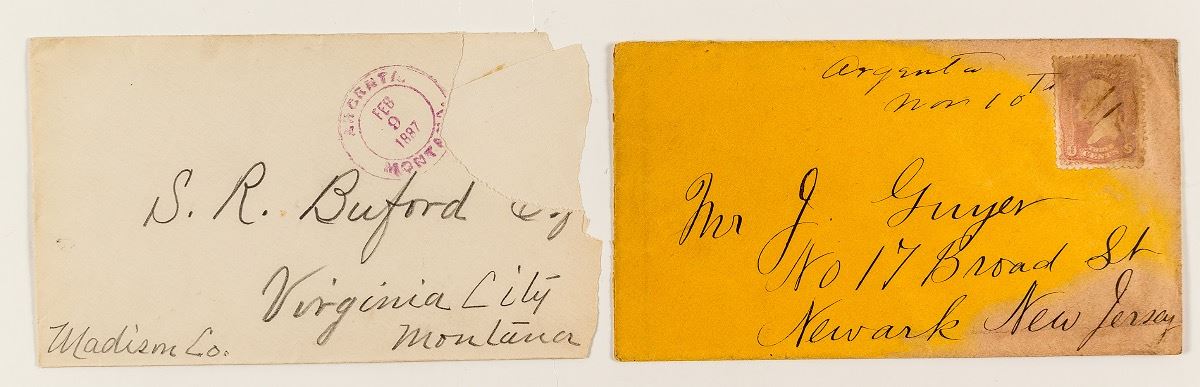 ARGENTA
FEB
9
1887
MONTANA.
S. R. Buford
Virginia City
Madison Co.
Montana
Argenta
Nov 10th
3 CENTS
Mr J. Guyer
No 17 Broad St
Newark New Jersey